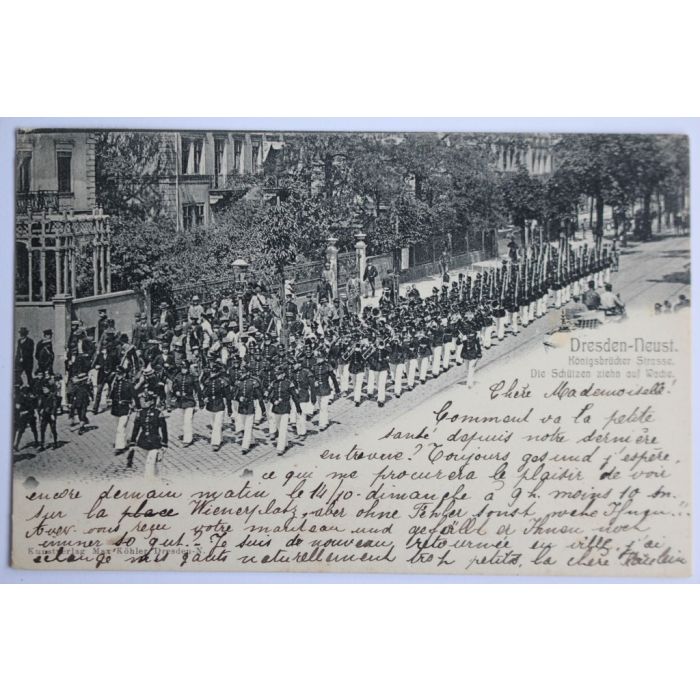 Dresden-Neust.
Königsbrücker Strasse.
Die Schützen ziehn auf Wache.
Chère Mademoiselle!
Comment va la petite
santé, depuis notre dernière
entrevue? Toujours gesund j'espère,
ce qui me procurera le plaisir de voir
encore demain matin le 14/10 dimanche à 9 h. moins 10 m.
sur la place Wienerplatz, aber ohne Fehler sonst wehe Ihnen!..
Avez-vous reçu votre manteau und gefällt er Ihnen noch
immer so gut.- Je suis de nouveau retournée en ville, j'ai
échangé mes gants naturellement trop petits, la chère Fräulein
Kunstverlag Max Köhler, Dresden-N.